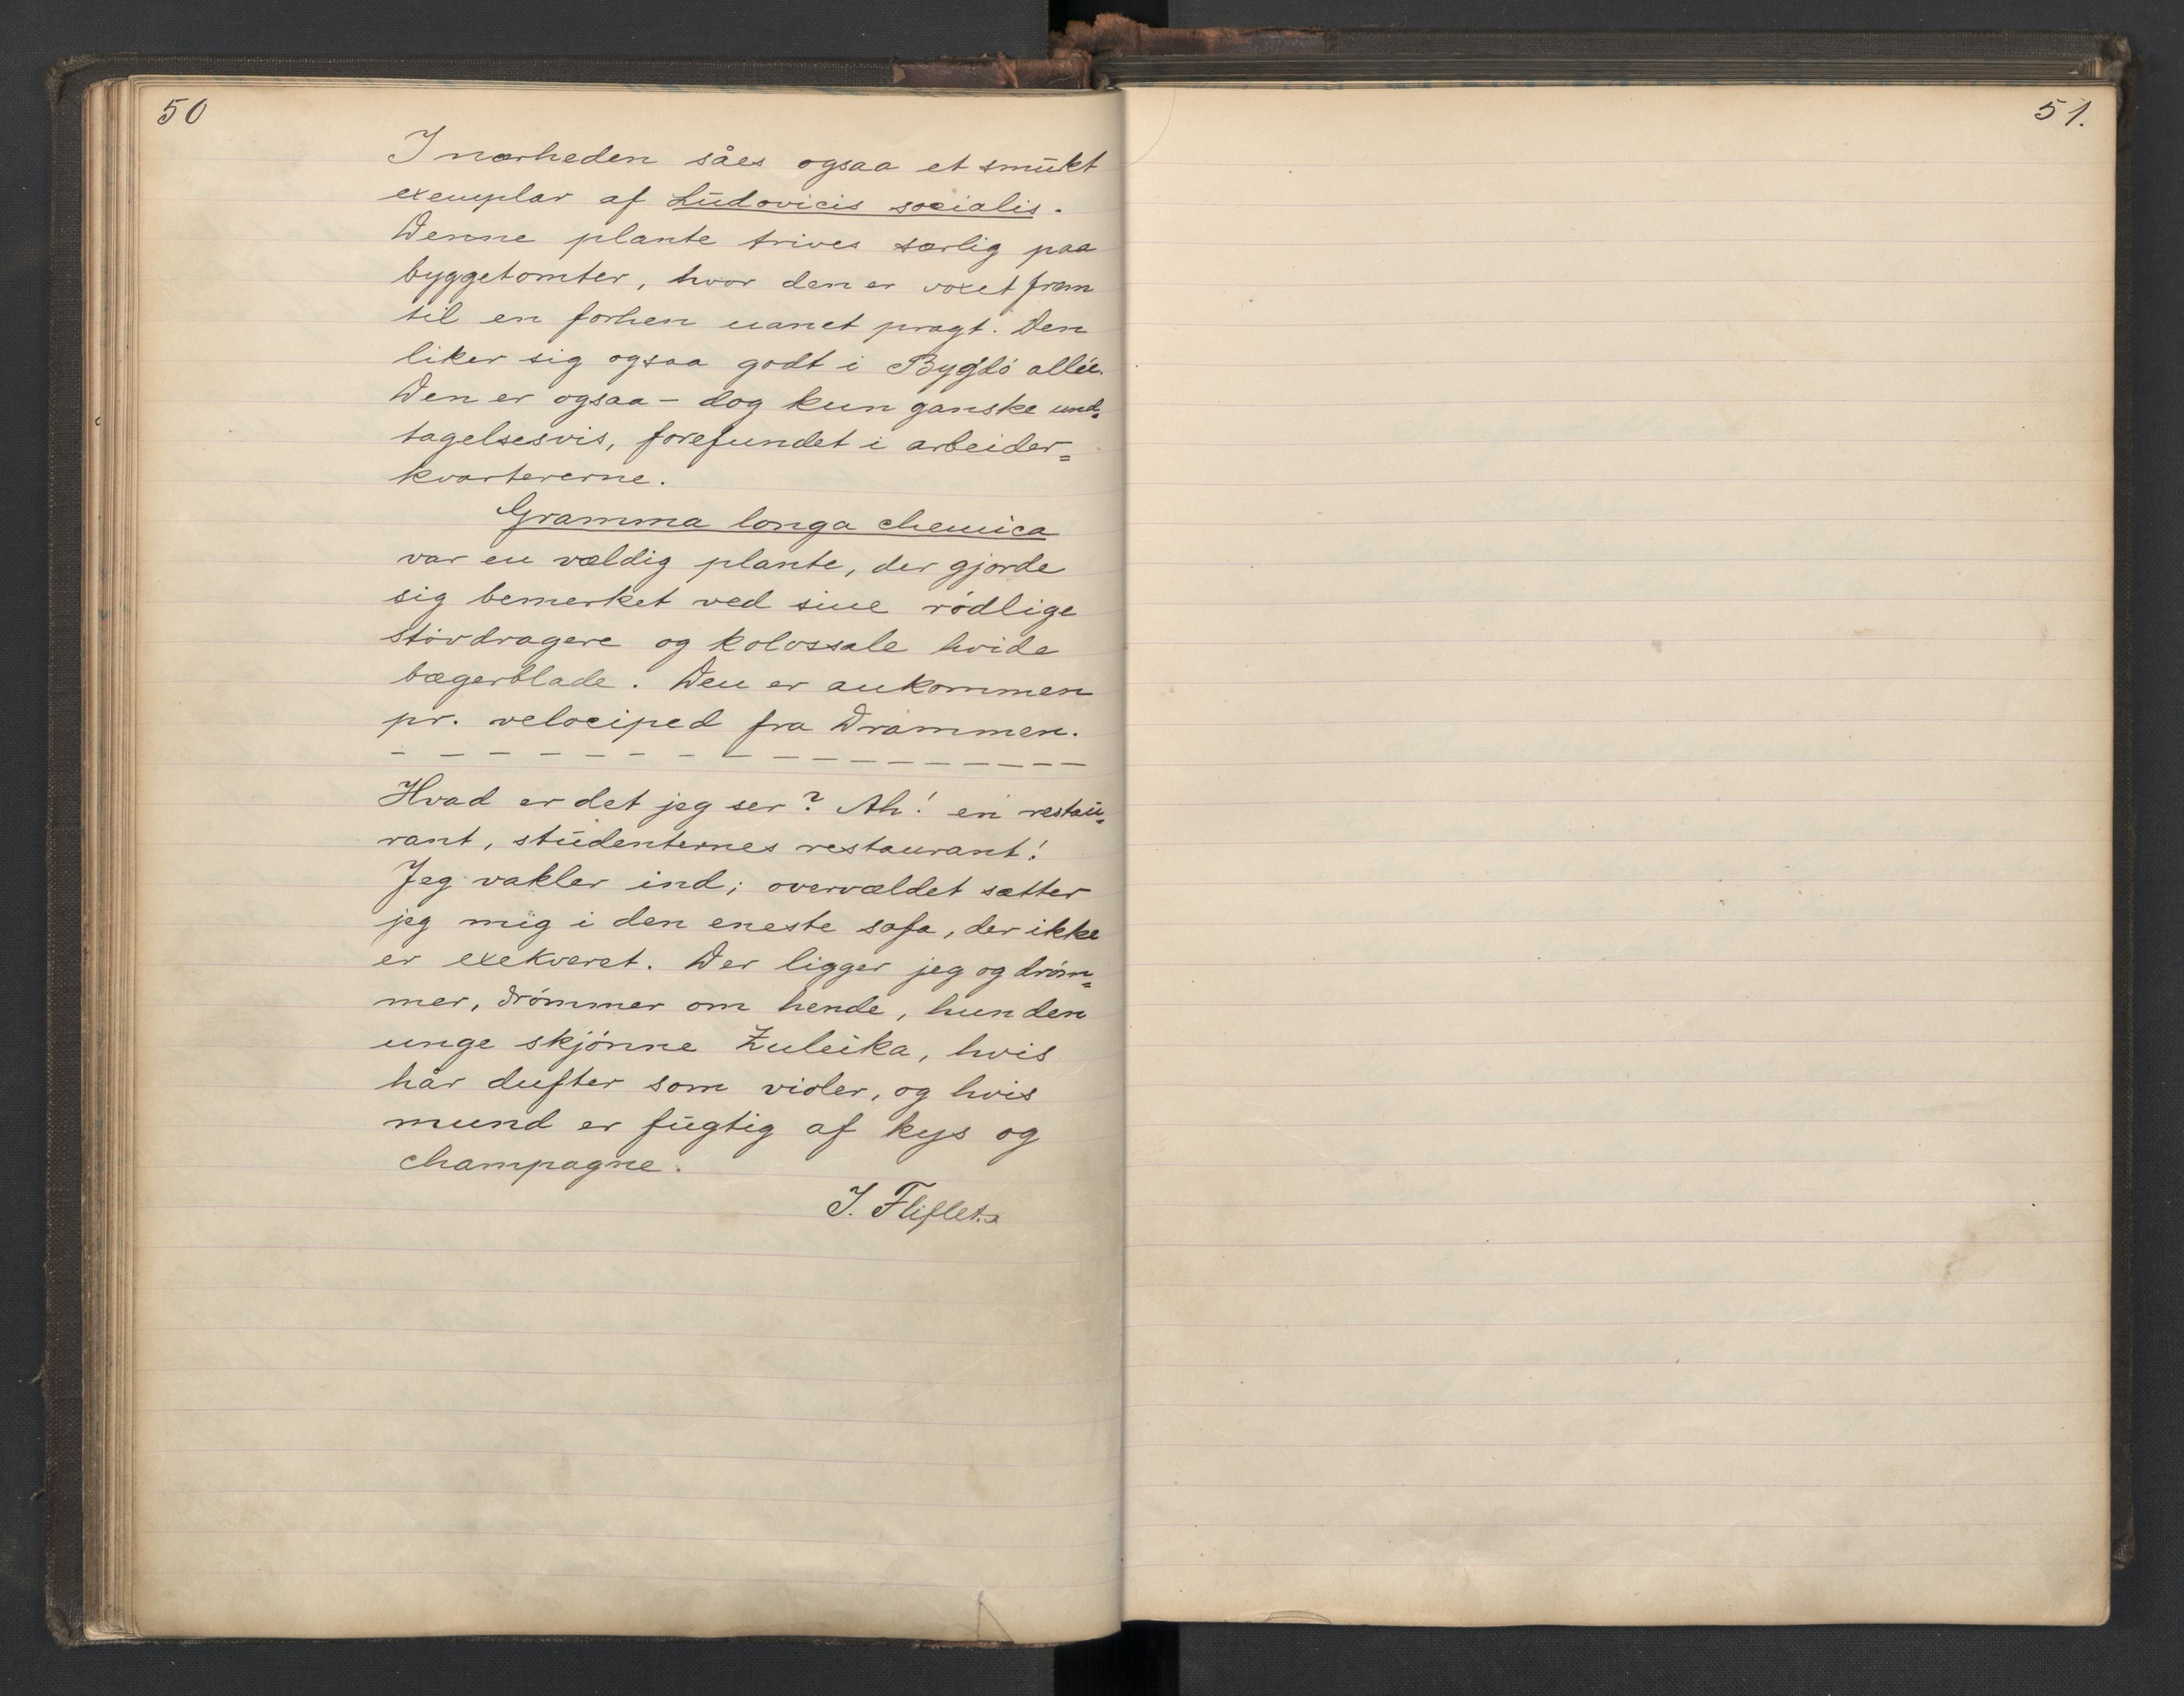 50
I nærheden såes ogsaa et smukt
exemplar af Ludovicis socialis.
Denne plante trives særlig paa
byggetomter, hvor den er voxet frem
til en forhen uanet pragt. Den
liker sig ogsaa godt i Bygdö allée.
Den er ogsaa - dog kun ganske und=
tagelsesvis, forefundet i arbeider=
kvartererne.
Gramma longa chemica
var en vældig plante, der gjorde
sig bemerket ved sine rödlige
stövdragere og kolossale hvide
bægerblade. Den er ankommen
pr. velociped fra Drammen.
Hvad er det jeg ser? Ah! en restau=
rant, studenternes restaurant!
Jeg vakler ind; overvældet sætter
jeg mig i den eneste sofa, der ikke
er exekveret. Der ligger jeg og dröm=
mer, drömmer om hende, hun den
unge skjönne Zuleika, hvis
hår dufter som violer, og hvis
mund er fugtig af kys og
champagne.
J. Fliflet.
51.